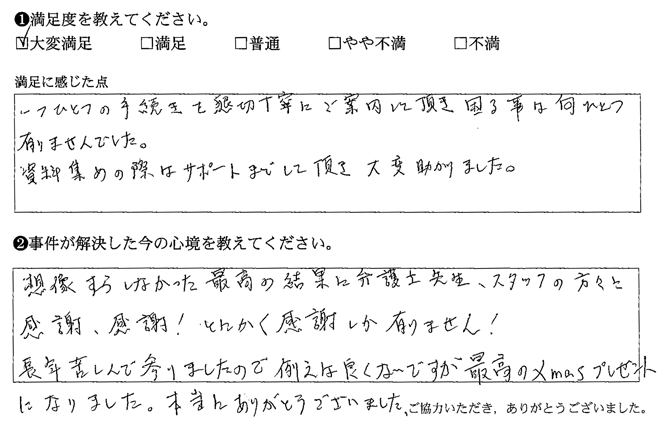 ❶満足度を教えてください。
☑大変満足 □満足 □普通 □やや不満 □不満
満足に感じた点
一つひとつの手続きを懇切丁寧にご案内して頂き困る事は何ひとつ
有りませんでした。
資料集めの際はサポートまでして頂き大変助かりました。
❷事件が解決した今の心境を教えてください。
想像すらしなかった最高の結果に弁護士先生、スタッフの方々に
感謝、感謝！とにかく感謝しか有りません！
長年苦しんで参りましたので例えは良くないですが最高のXmasプレゼント
になりました。本当にありがとうございました。
ご協力いただき，ありがとうございました。